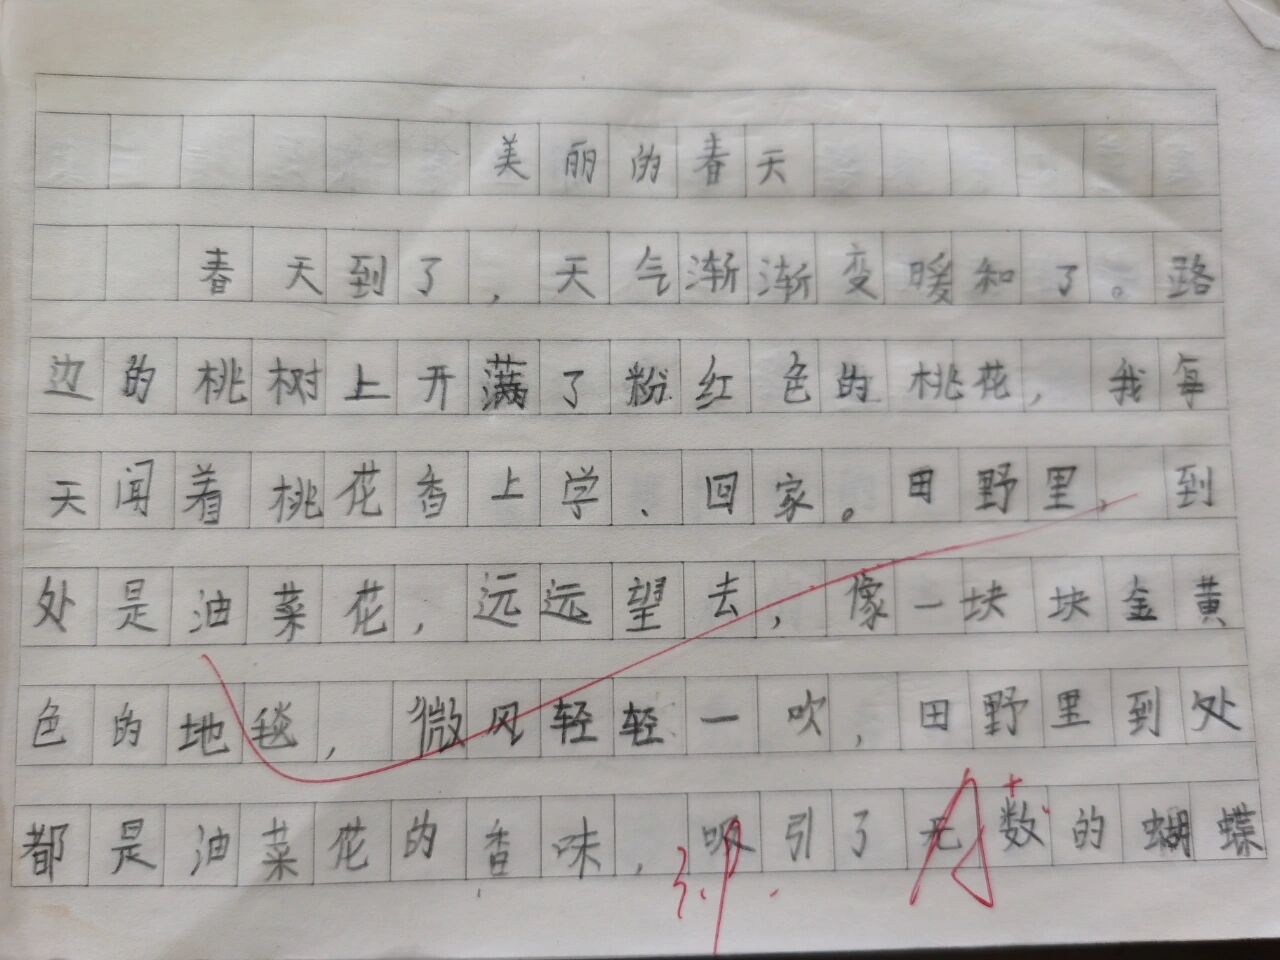 美丽的春天
春天到了,天气渐渐变暖和了。路
边的桃树上开满了粉红色的桃花,我每
天闻着桃花香上学、回家。田野里,到
处是油菜花,远远望去,像一块块金黄
色的地毯,微风轻轻一吹,田野里到处
都是油菜花的香味,吸引了无数的蝴蝶
3.9. A+